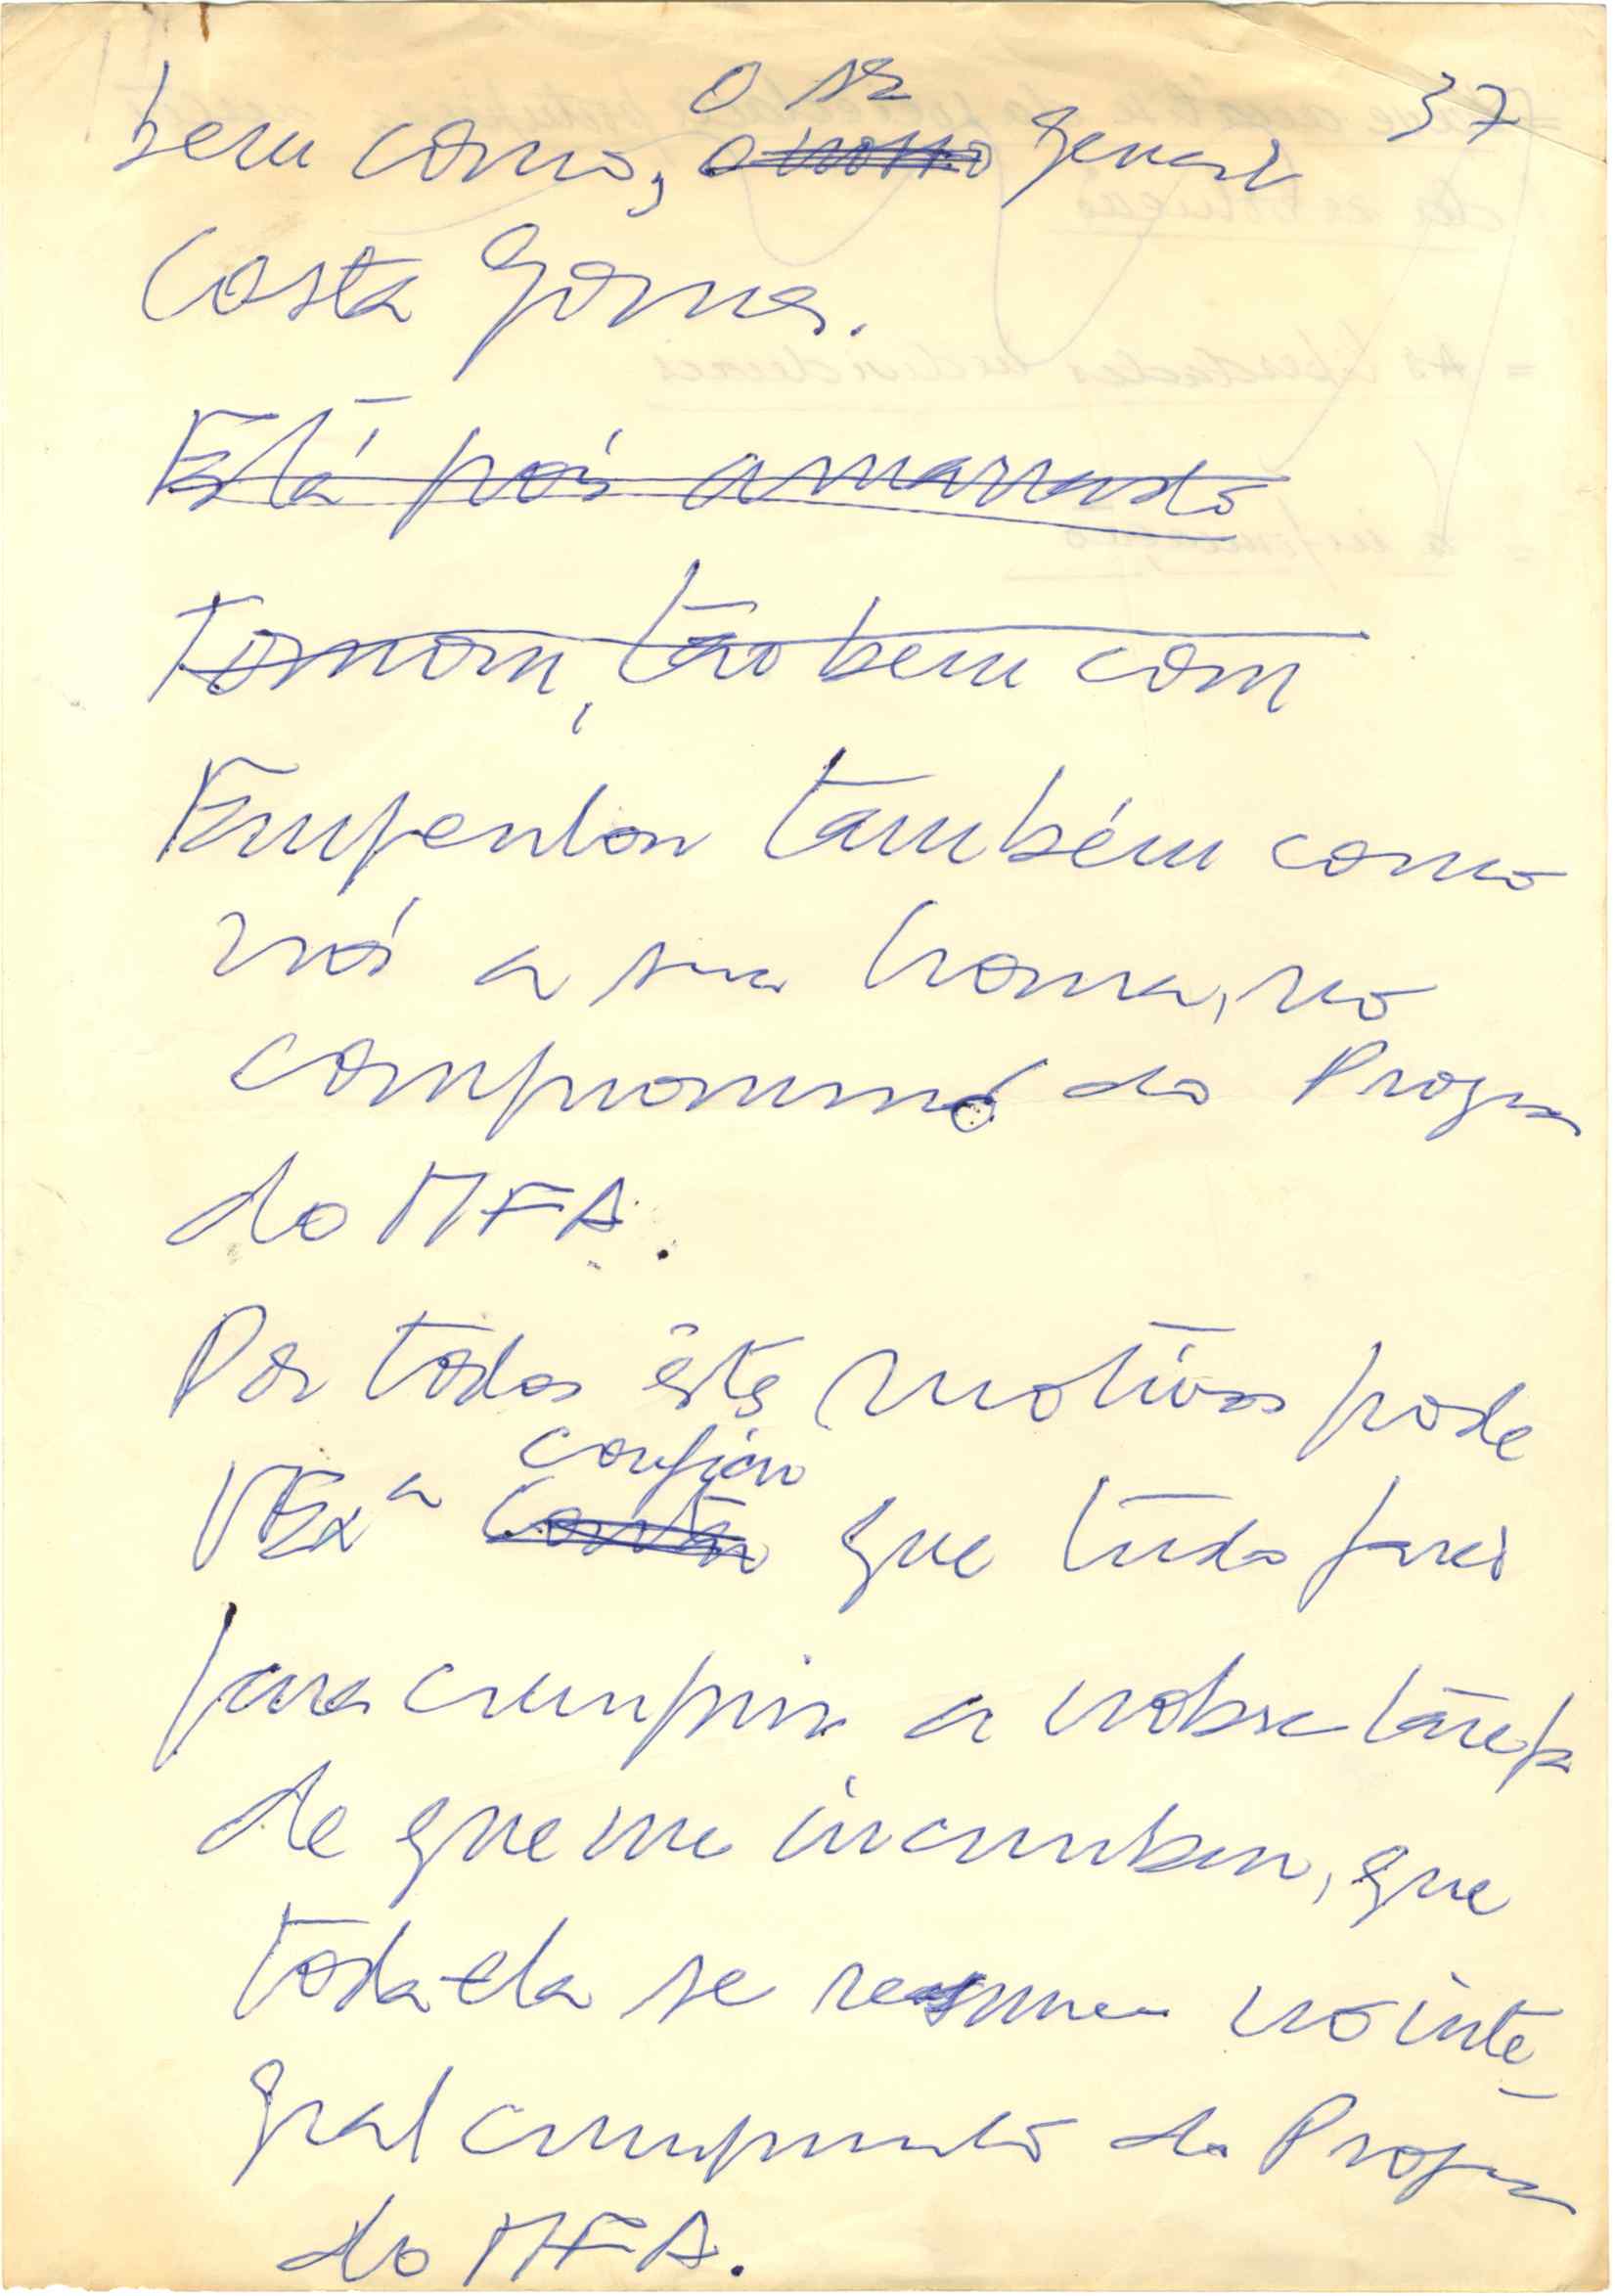 37
o sr
bem como, o nosso General
Costa Gomes.
Está pois amarrado
Tomou, tão bem com
Empenhou também como
nós a sua honra, no
compromisso do Programa
do MFA.
Por todos êstes motivos pode
confiar
VExª contar que tudo farei
para cumprir a nobre tarefa
de que me incumbem, que
toda ela se resume no inte-
gral cumprimento do Programa
do MFA.